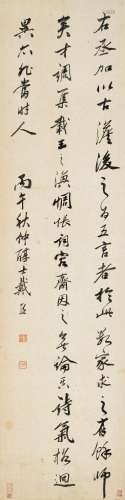 右丞加以古澹後之为五言者於此數家求之有餘師
矣才調集載王之渙惆悵詞容齋因之每論其詩氣格迥
異不非當時人
丙午秋仲醇士戴熙